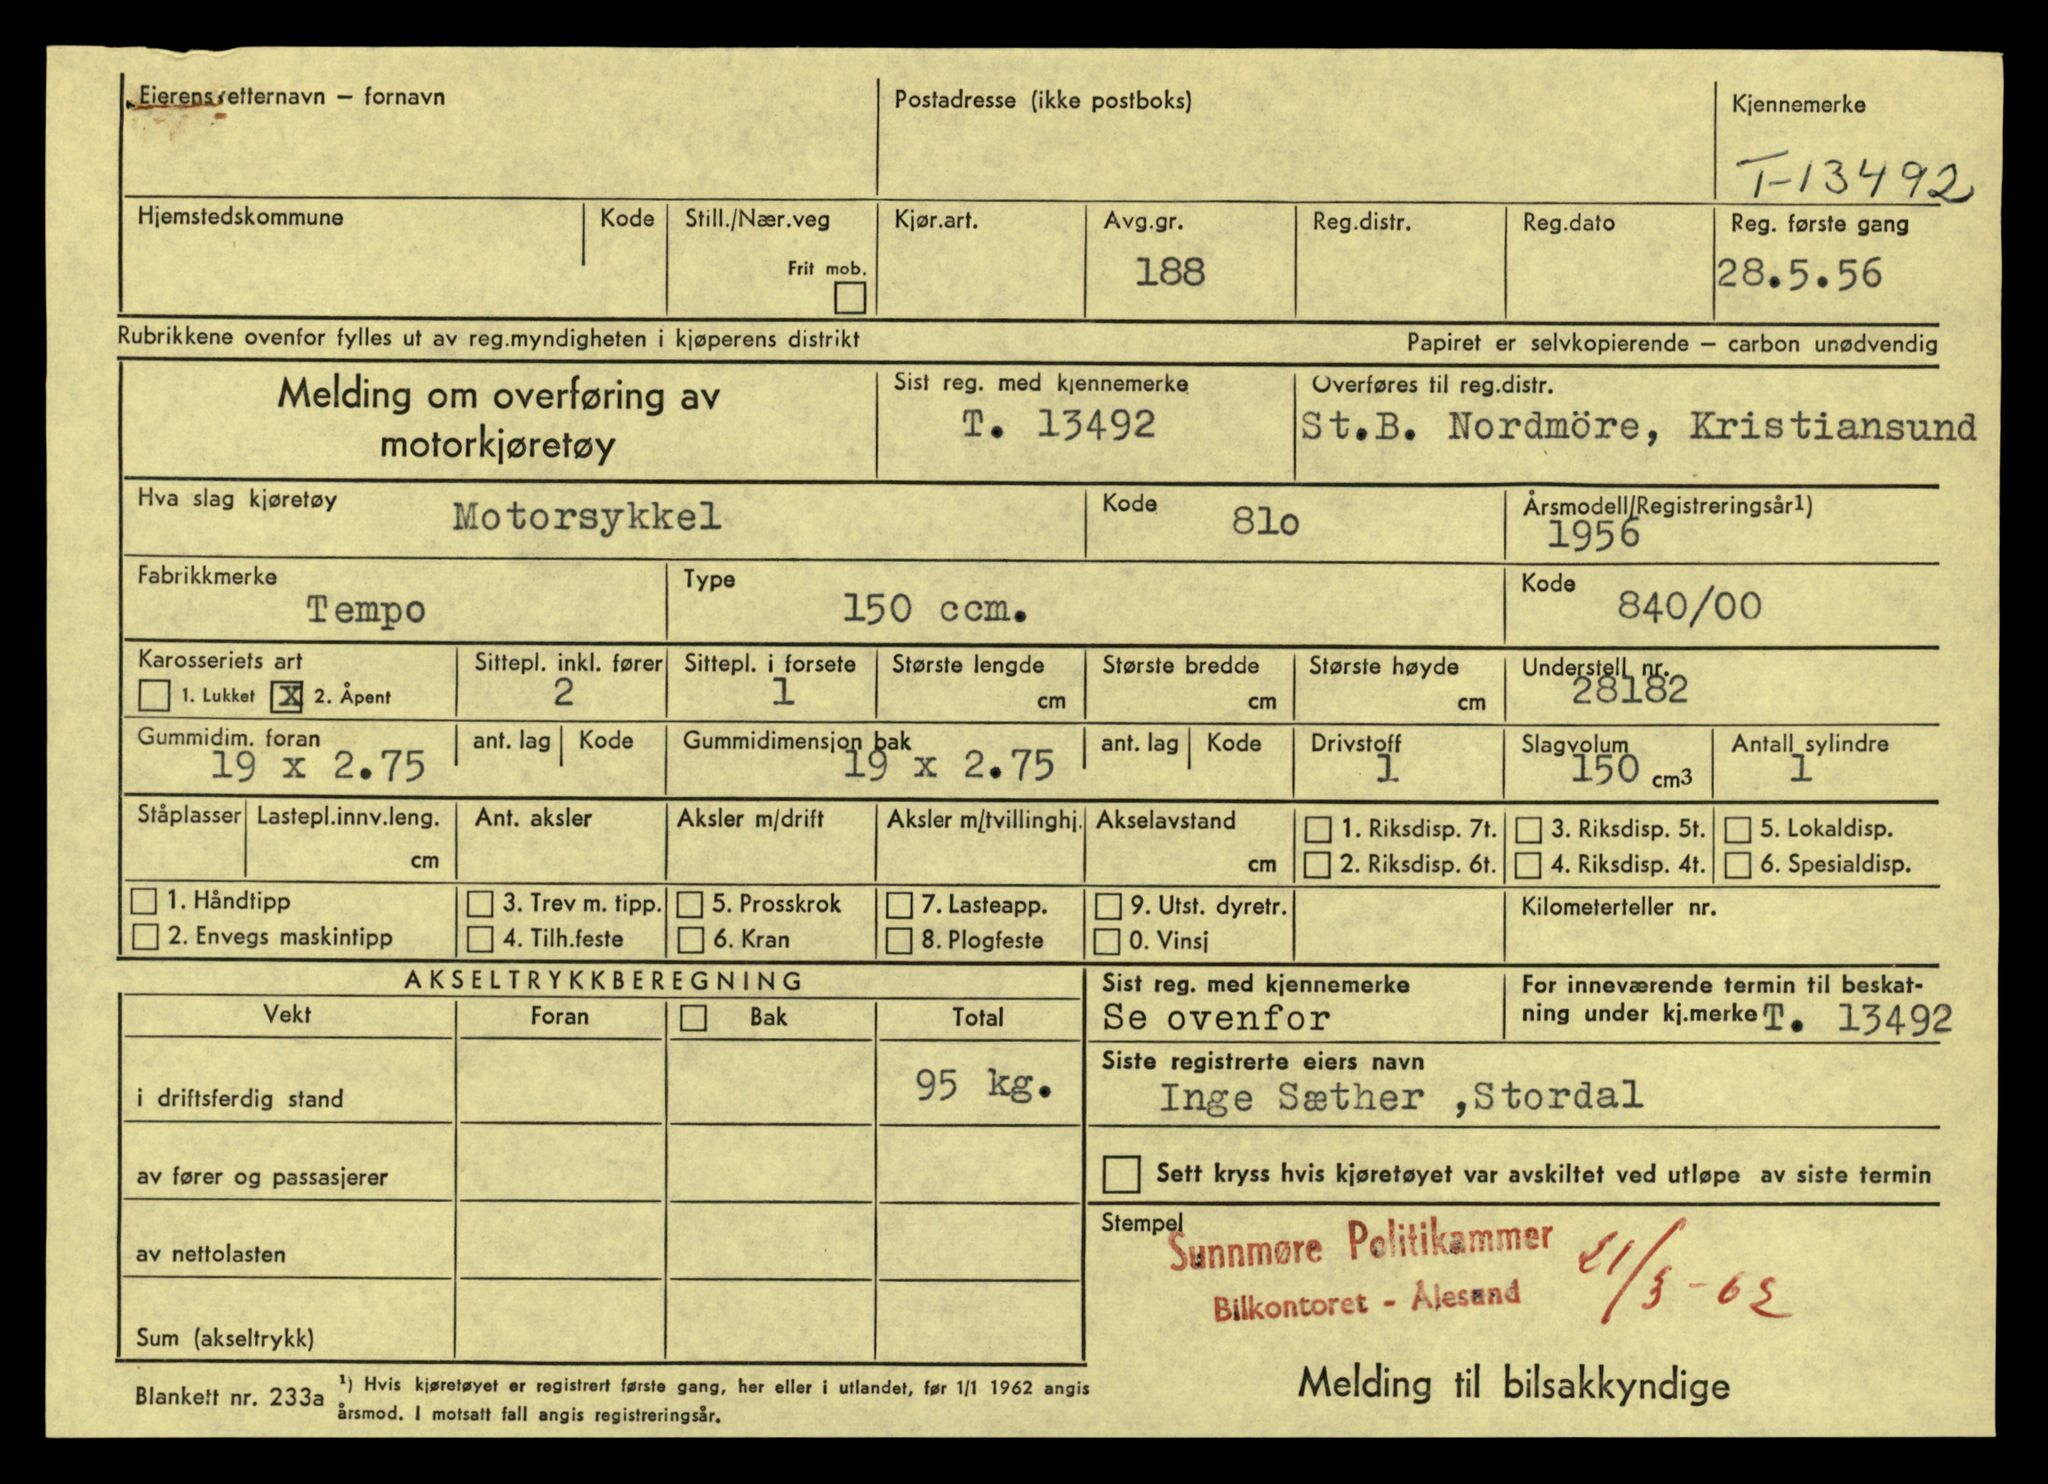 Eierens etternavn – fornavn
Postadresse (ikke postboks)
Kjennemerke
T-13492
Hjemstedskommune
Kode
Still./Nær.veg
Frit mob.
Kjør.art.
Avg.gr.
188
Reg.distr.
Reg.dato
Reg. første gang
28.5.56
Rubrikkene ovenfor fylles ut av reg.myndigheten i kjøperens distrikt
Papiret er selvkopierende – carbon unødvendig
Melding om overføring av
motorkjøretøy
Sist reg. med kjennemerke
T. 13492
Overføres til reg.distr.
St.B. Nordmöre, Kristiansund
Hva slag kjøretøy
Motorsykkel
Kode
81o
Årsmodell/Registreringsår1)
1956
Fabrikkmerke
Tempo
Type
150 ccm.
Kode
840/00
Karosseriets art
1. Lukket X 2. Åpent
Sittepl. inkl. fører
2
Sittepl. i forsete
1
Største lengde
cm
Største bredde
cm
Største høyde
cm
Understell nr.
28182
Gummidim. foran
19 x 2.75
ant. lag
Kode
Gummidimensjon bak
19 x 2.75
ant. lag
Kode
Drivstoff
1
Slagvolum
150 cm3
Antall sylindre
1
Ståplasser
Lastepl.innv.leng.
cm
Ant. aksler
Aksler m/drift
Aksler m/tvillinghj.
Akselavstand
cm
1. Riksdisp. 7t.
2. Riksdisp. 6t.
3. Riksdisp. 5t.
4. Riksdisp. 4t.
5. Lokaldisp.
6. Spesialdisp.
1. Håndtipp
2. Envegs maskintipp
3. Trev m. tipp.
4. Tilh.feste
5. Prosskrok
6. Kran
7. Lasteapp.
8. Plogfeste
9. Utst. dyretr.
0. Vinsj
Kilometerteller nr.
AKSELTRYKKBEREGNING
Vekt
Foran
Bak
Total
i driftsferdig stand
95 kg.
av fører og passasjerer
av nettolasten
Sum (akseltrykk)
Sist reg. med kjennemerke
Se ovenfor
For inneværende termin til beskat-
ning under kj.merke T. 13492
Siste registrerte eiers navn
Inge Sæther ,Stordal
Sett kryss hvis kjøretøyet var avskiltet ved utløpe av siste termin
Stempel
Sunnmøre Politikammer
Bilkontoret - Ålesund
21/3-62
Melding til bilsakkyndige
Blankett nr. 233a
1) Hvis kjøretøyet er registrert første gang, her eller i utlandet, før 1/1 1962 angis
årsmod. I motsatt fall angis registreringsår.